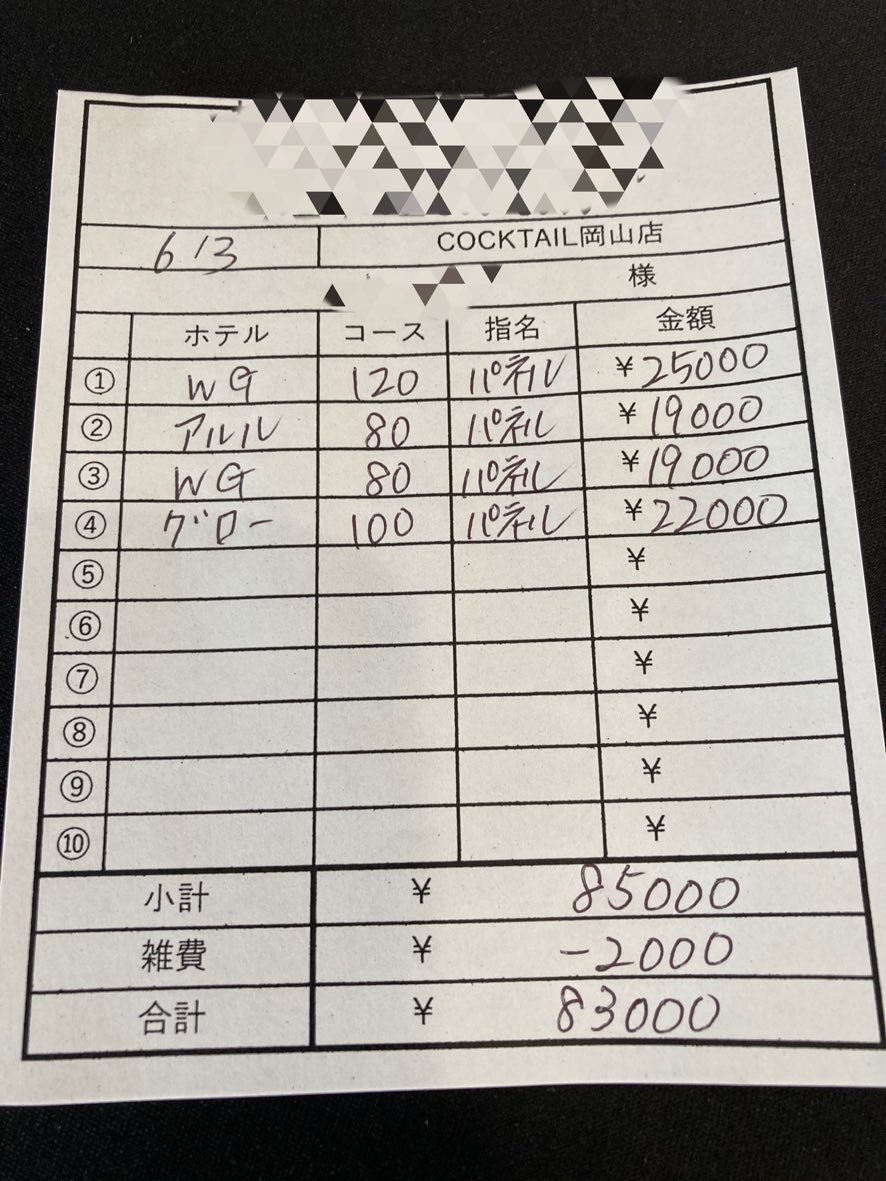 6/3 COCKTAIL岡山店
様
ホテル コース 指名 金額
① WG 120 パネル ¥25000
② アルル 80 パネル ¥19000
③ WG 80 パネル ¥19000
④ グロー 100 パネル ¥22000
⑤ ¥
⑥ ¥
⑦ ¥
⑧ ¥
⑨ ¥
⑩ ¥
小計 ¥ 85000
雑費 ¥ -2000
合計 ¥ 83000